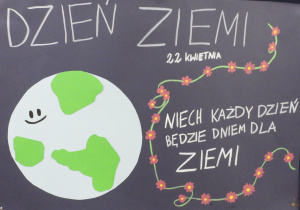 DZIEŃ ZIEMI
22 KWIETNIA
NIECH KAŻDY DZIEŃ
BĘDZIE DNIEM DLA
ZIEMI